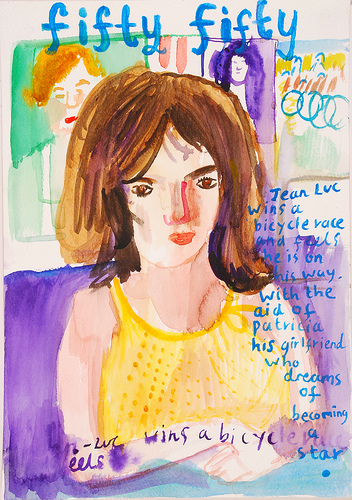 fifty fifty
Jean Luc
wins a
bicycle race
and feels
he is on
his way.
With the
aid of
patricia
his girlfriend
who
dreams
of
becoming
a
star
-Luc wins a bicycle
eels